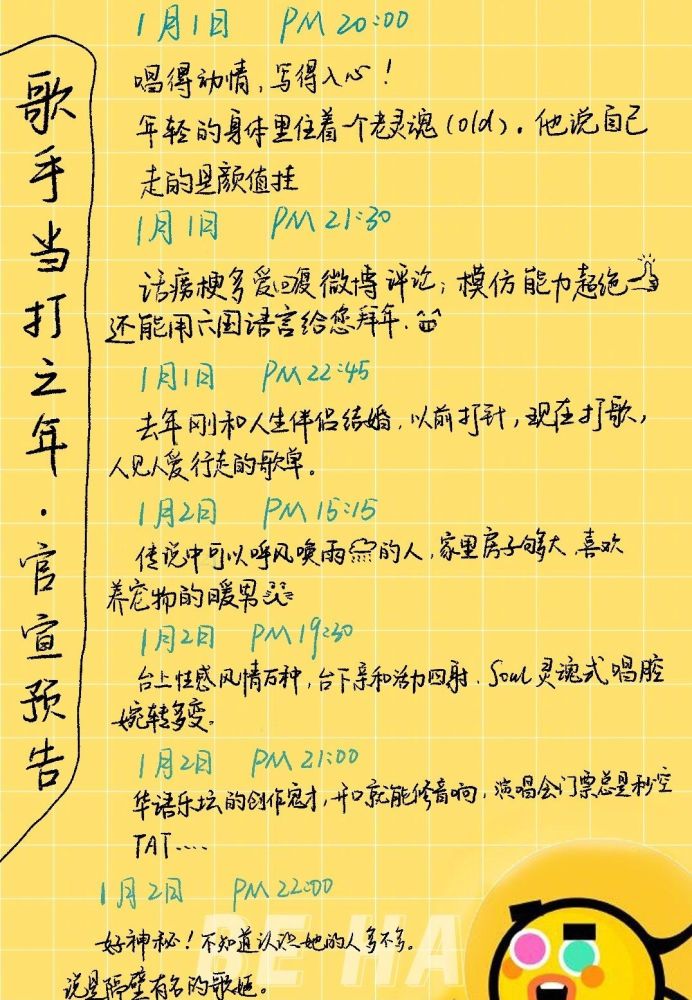 歌手当打之年·官宣预告
1月1日 PM 20:00
唱得动情,写得入心!
年轻的身体里住着一个老灵魂(old)。他说自己
走的是颜值挂
1月1日 PM 21:30
话痨梗多爱回复微博评论;模仿能力超绝
还能用六国语言给您拜年.
1月1日 PM 22:45
去年刚和人生伴侣结婚,以前打针,现在打歌,
人见人爱行走的歌单。
1月2日 PM 15:15
传说中可以呼风唤雨的人,家里房子够大,喜欢
养宠物的暖男
1月2日 PM 19:30
台上性感风情万种,台下亲和活力四射.Soul灵魂式唱腔
婉转多变。
1月2日 PM 21:00
华语乐坛的创作鬼才,开口就能修音响,演唱会门票总是秒空
TAT....
1月2日 PM 22:00
好神秘!不知道认识她的人多不多。
说是隔壁有名的歌姬。
BE HA